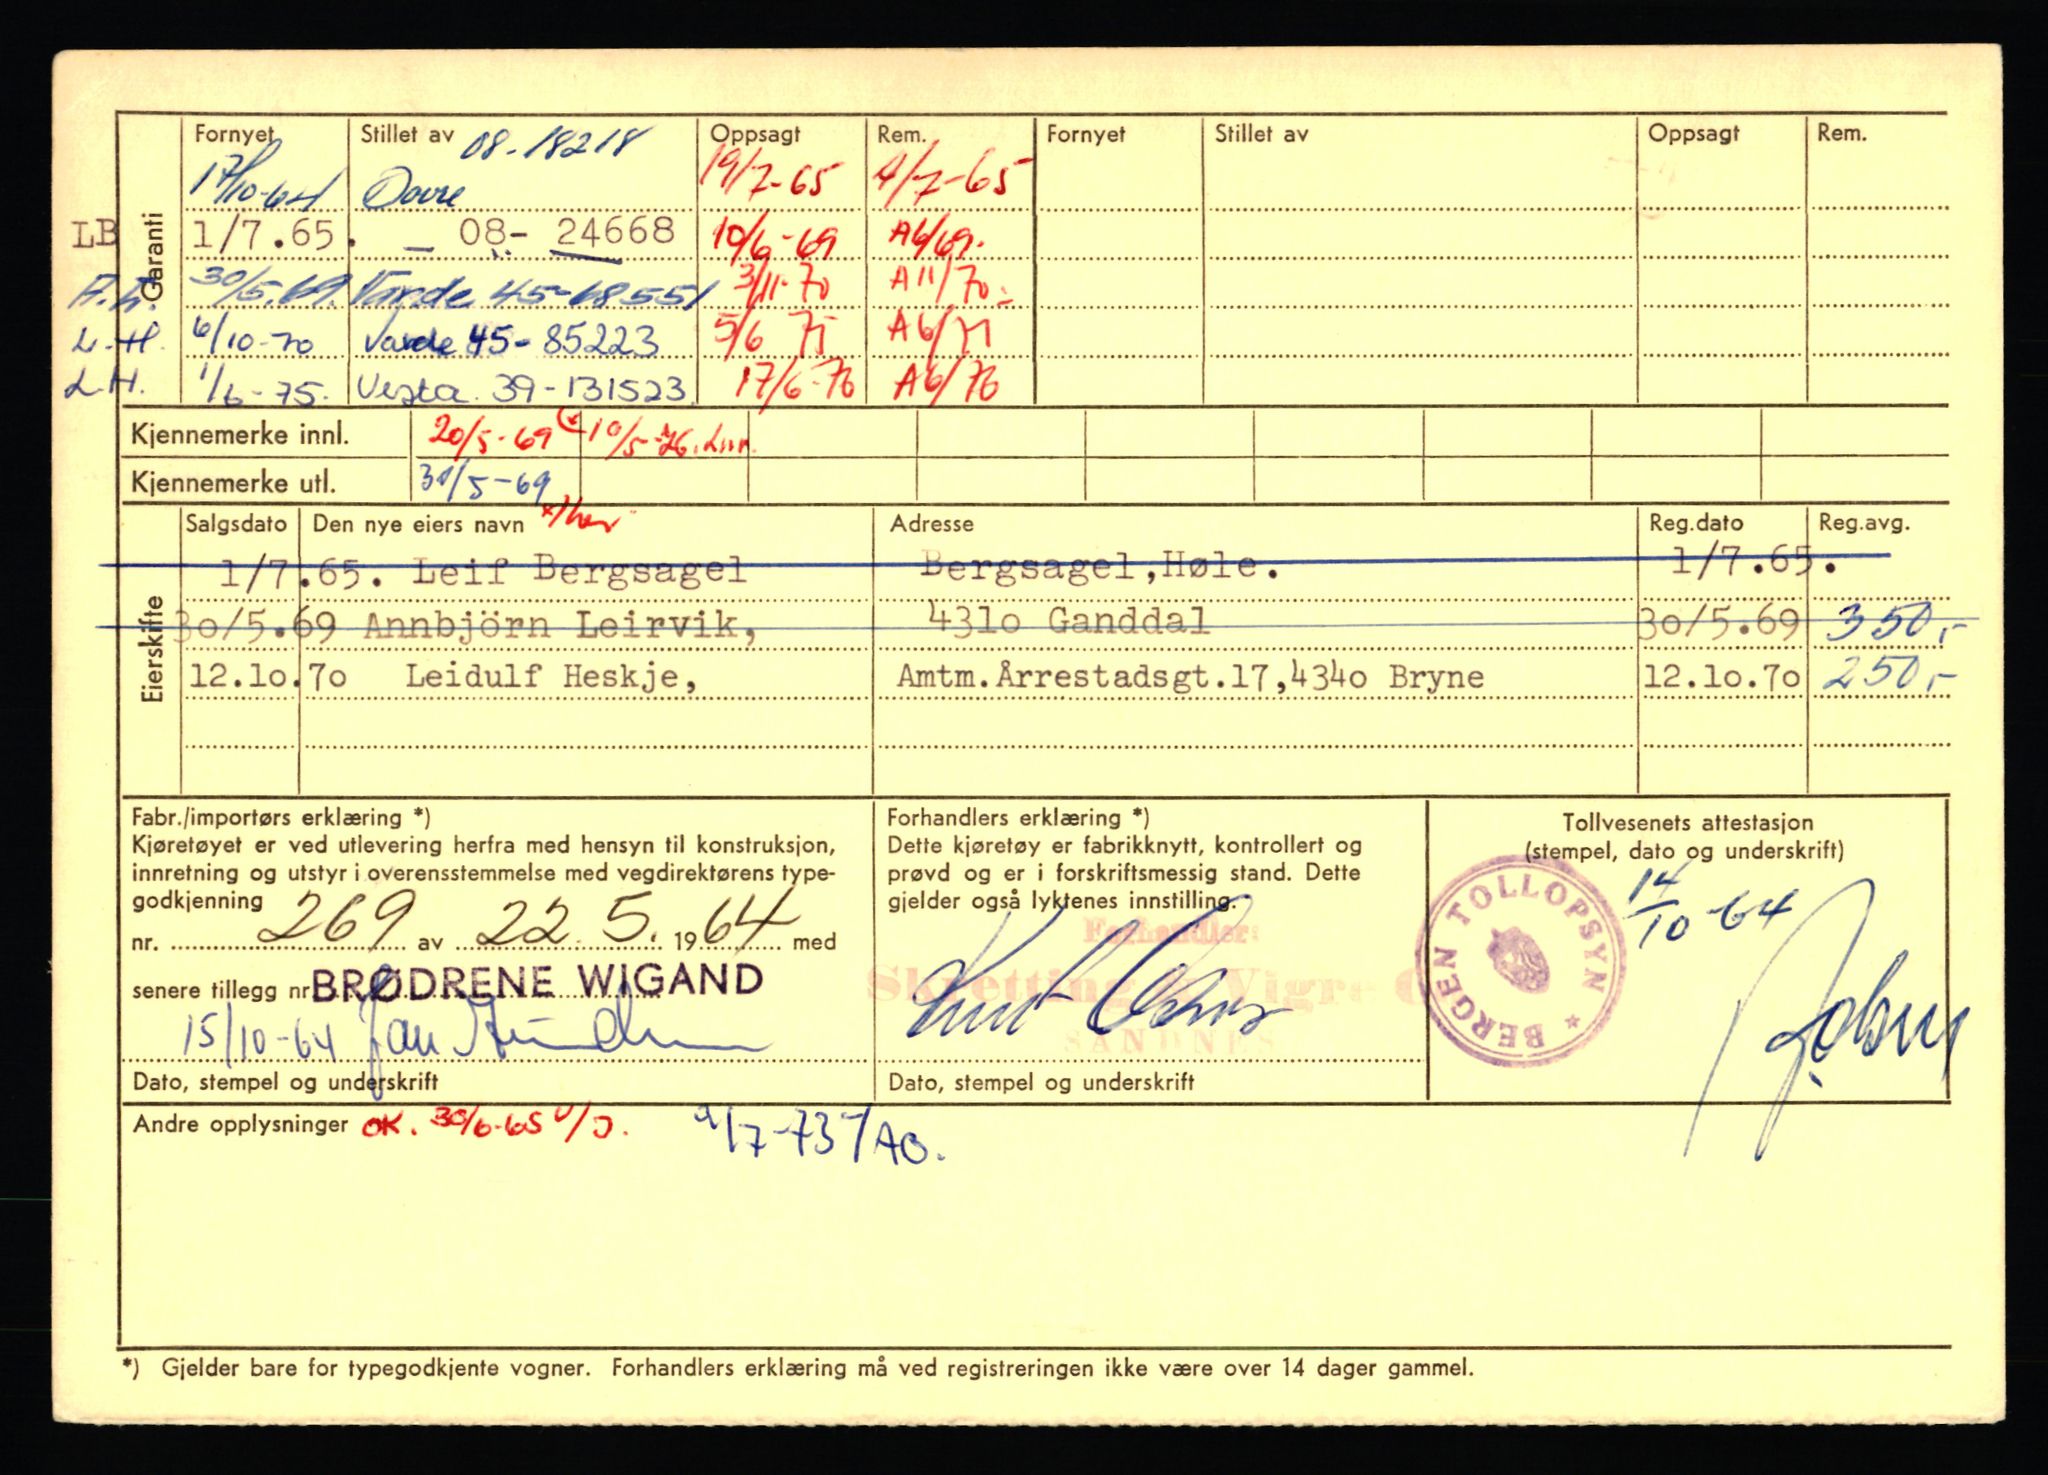 Fornyet Stillet av 08-18218 Oppsagt Rem. Fornyet Stillet av Oppsagt Rem.
Garanti
17/10-64 Dovre 19/7-65 1/7-65
LB 1/7.65. _ 08- 24668 10/6-69 A6/69.
30/5.69. Varde 45-68551 3/11-70 A11/70
L.H. 6/10-70 Varde 45-85223 5/6 75 A6/
L.H. 1/6-75. Vesta 39-131523 17/6-76 A6/76
Kjennemerke innl. 20/5-69 10/5-76.
Kjennemerke utl. 30/5-69
Eierskifte
Salgsdato Den nye eiers navn Adresse Reg.dato Reg.avg.
1/7.65. Leif Bergsagel Bergsagel,Høle. 1/7.65.
30/5.69 Annbjörn Leirvik, 4310 Ganddal 30/5.69 350,-
12.10.70 Leidulf Heskje, Amtm.Årrestadsgt.17,4340 Bryne 12.10.70 250,-
Fabr./importørs erklæring *)
Kjøretøyet er ved utlevering herfra med hensyn til konstruksjon,
innretning og utstyr i overensstemmelse med vegdirektørens type-
godkjenning
nr. 269 av 22.5. 1964 med
senere tillegg nr BRØDRENE WIGAND
15/10-64 Jan
Dato, stempel og underskrift
Forhandlers erklæring *)
Dette kjøretøy er fabrikknytt, kontrollert og
prøvd og er i forskriftsmessig stand. Dette
gjelder også lyktenes innstilling.
Forhandler:
Skretting Vigre
SANDNES
Dato, stempel og underskrift
Tollvesenets attestasjon
(stempel, dato og underskrift)
14/10-64
BERGEN TOLLOPSYN
Andre opplysninger OK. 30/6-65
*) Gjelder bare for typegodkjente vogner. Forhandlers erklæring må ved registreringen ikke være over 14 dager gammel.